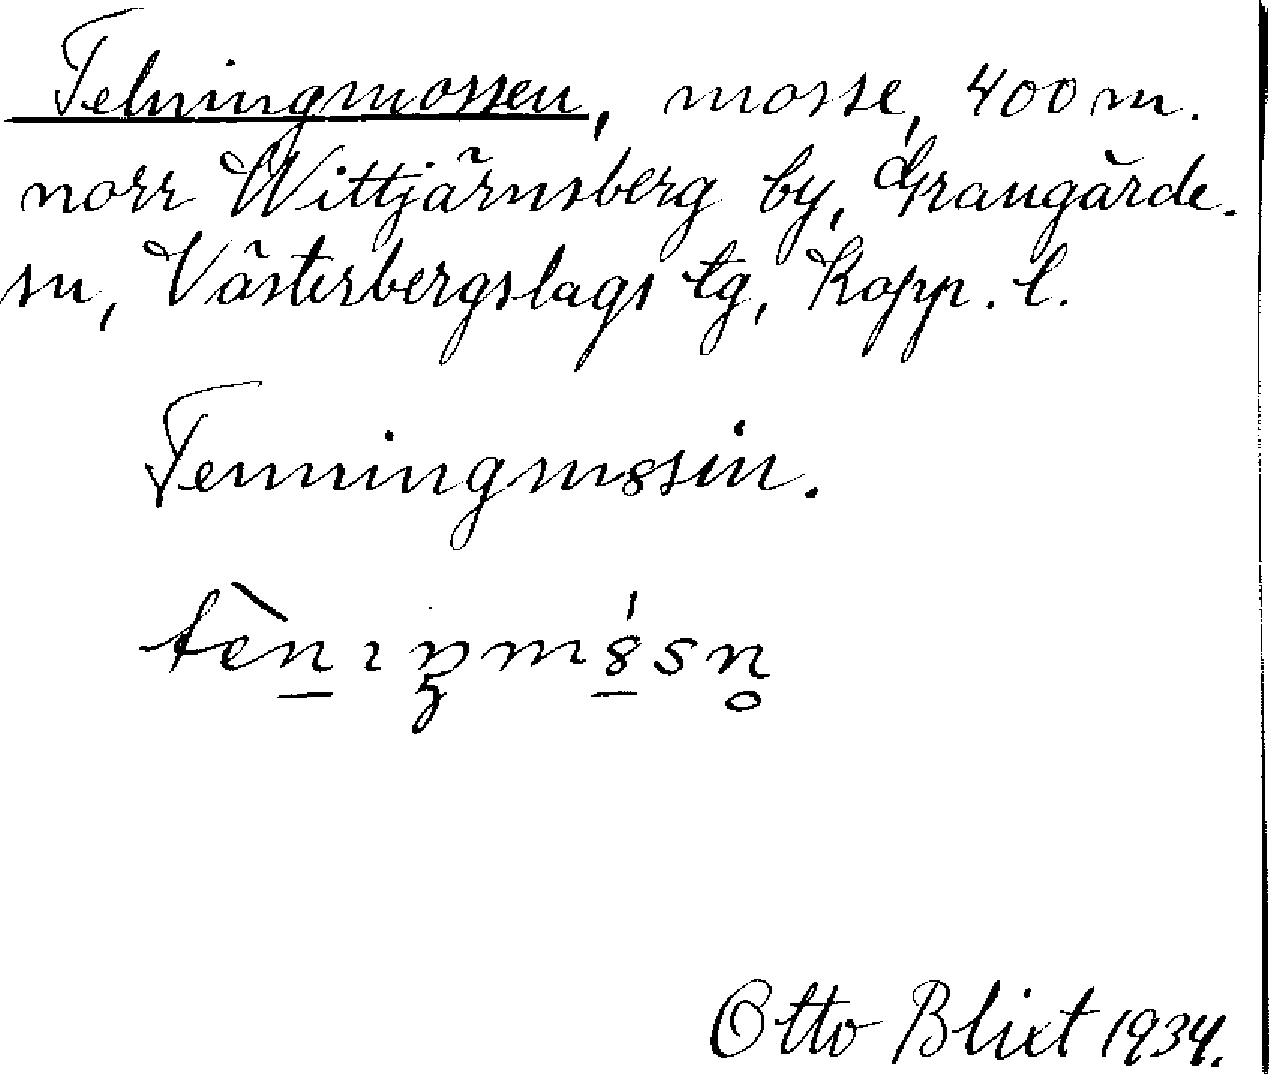 Telningmossen, mosse, 400 m.
norr Wittjärnsberg by, Grangärde.
sn, Västerbergslags tg, Kopp. l.
Tenningm8ssin.
tèn̲ıŋm8́sn̥
Otto Blixt 1934.